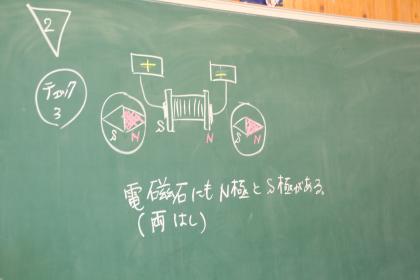 2
チェック
3
+
-
S
N
S
N
S
N
電磁石にもN極とS極がある。
(両はし)